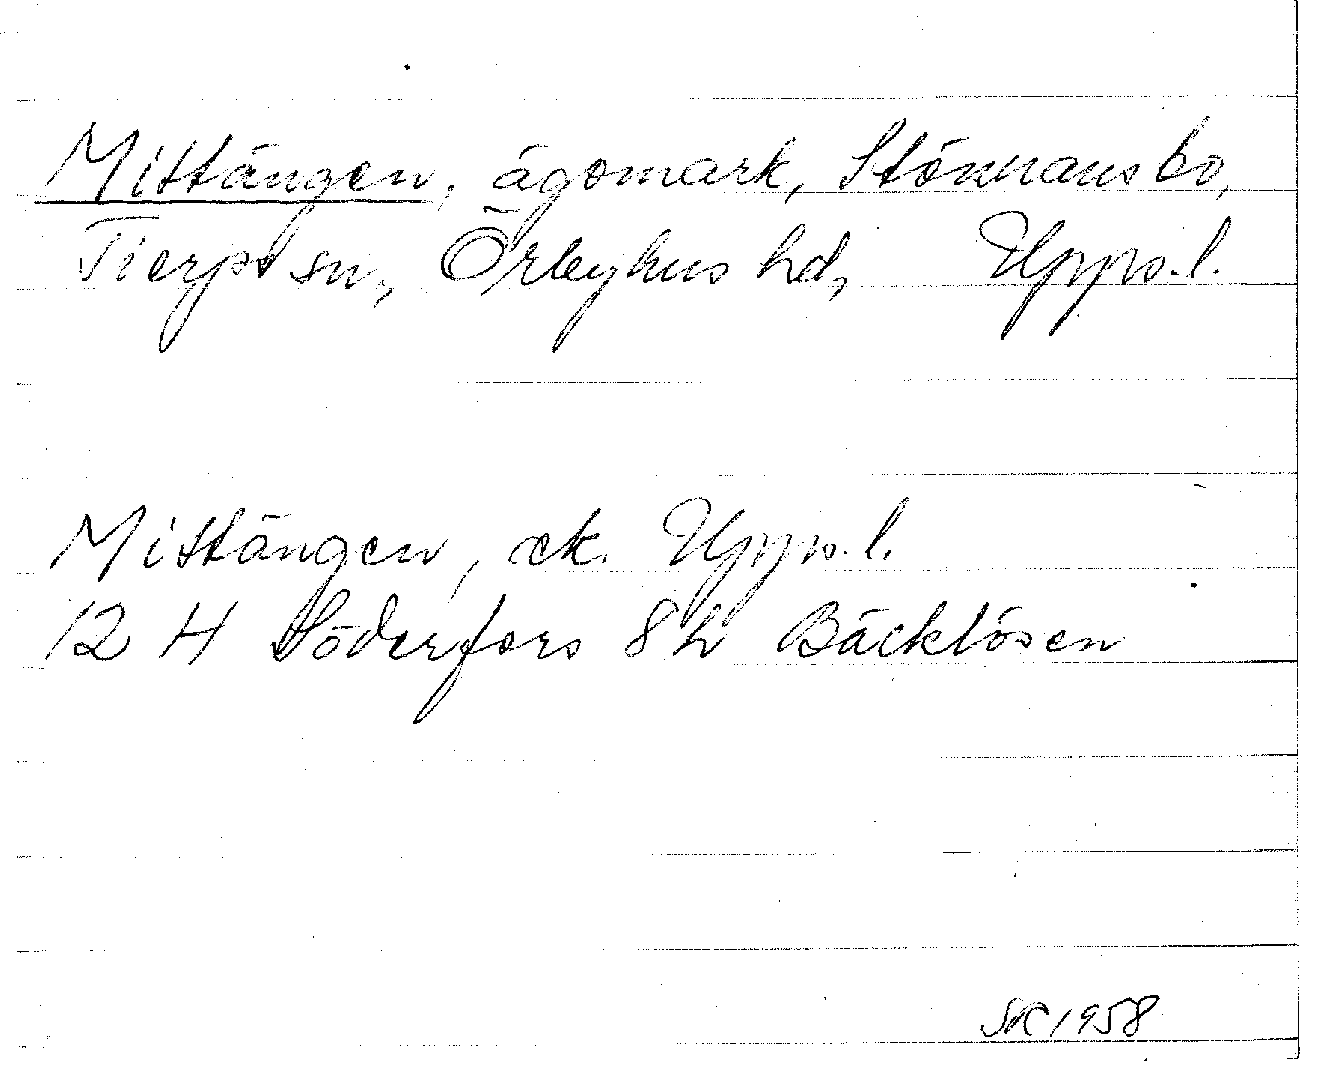 Mittängen, ägomark, Stönnansbo,
Tierps sn, Örbyhus hd, Upps.l.
Mittängen, ek. Upps.l.
12 H Söderfors 8h Bäcklösen
SK 1958